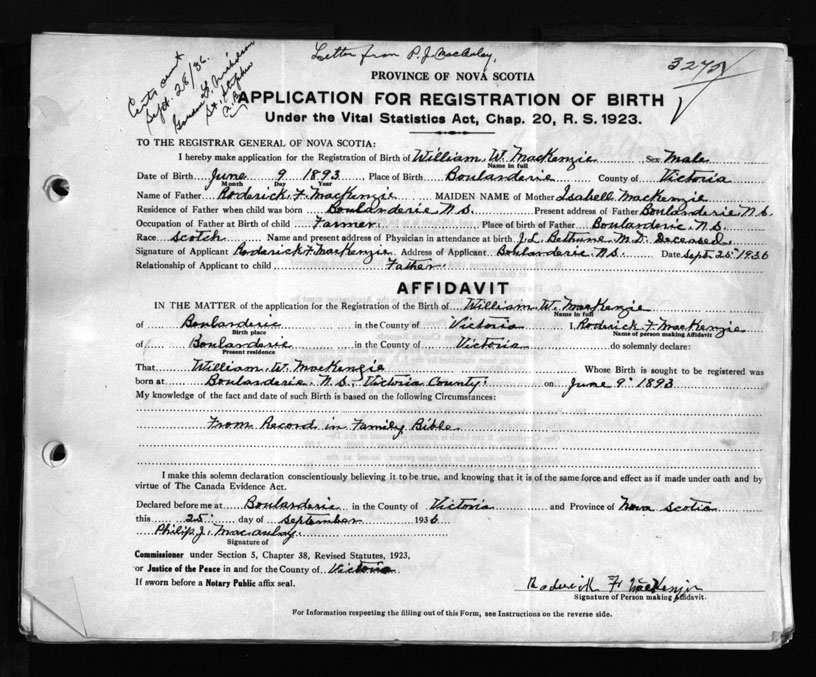 Letter from P. J. MacAulay,
Certs sent
Sept. 28/36.
St. Stephen
PROVINCE OF NOVA SCOTIA
APPLICATION FOR REGISTRATION OF BIRTH
Under the Vital Statistics Act, Chap. 20, R. S. 1923.
TO THE REGISTRAR GENERAL OF NOVA SCOTIA:
I hereby make application for the Registration of Birth of William W. MacKenzie Sex Male
Name in full
Date of Birth June 9 1893 Place of Birth Boularderie County of Victoria
Month Day Year
Name of Father Roderick F. MacKenzie MAIDEN NAME of Mother Isabell MacKenzie
Residence of Father when child was born Boularderie N.S. Present address of Father Boularderie N.S.
Occupation of Father at Birth of child Farmer Place of birth of Father Boularderie N.S.
Race Scotch Name and present address of Physician in attendance at birth J. L. Bethune M.D. Deceased.
Signature of Applicant Roderick F MacKenzie Address of Applicant Boularderie N.S. Date Sept 25 1936
Relationship of Applicant to child Father.
AFFIDAVIT
IN THE MATTER of the application for the Registration of the Birth of William W. MacKenzie
Name in full
of Boularderie in the County of Victoria I, Roderick F. MacKenzie
Birth place Name of person making Affidavit
of Boularderie in the County of Victoria do solemnly declare:
Present residence
That William W. MacKenzie Whose Birth is sought to be registered was
born at Boularderie N.S. Victoria County. on June 9 1893
My knowledge of the fact and date of such Birth is based on the following Circumstances:
From Record in Family Bible
I make this solemn declaration conscientiously believing it to be true, and knowing that it is of the same force and effect as if made under oath and by
virtue of The Canada Evidence Act.
Declared before me at Boularderie in the County of Victoria and Province of Nova Scotia
this 25 day of September 1936
Philip J. MacAulay
Signature of
Commissioner under Section 5, Chapter 38, Revised Statutes, 1923,
or Justice of the Peace in and for the County of Victoria
If sworn before a Notary Public affix seal.
Roderick F MacKenzie
Signature of Person making Affidavit.
For Information respecting the filling out of this Form, see Instructions on the reverse side.